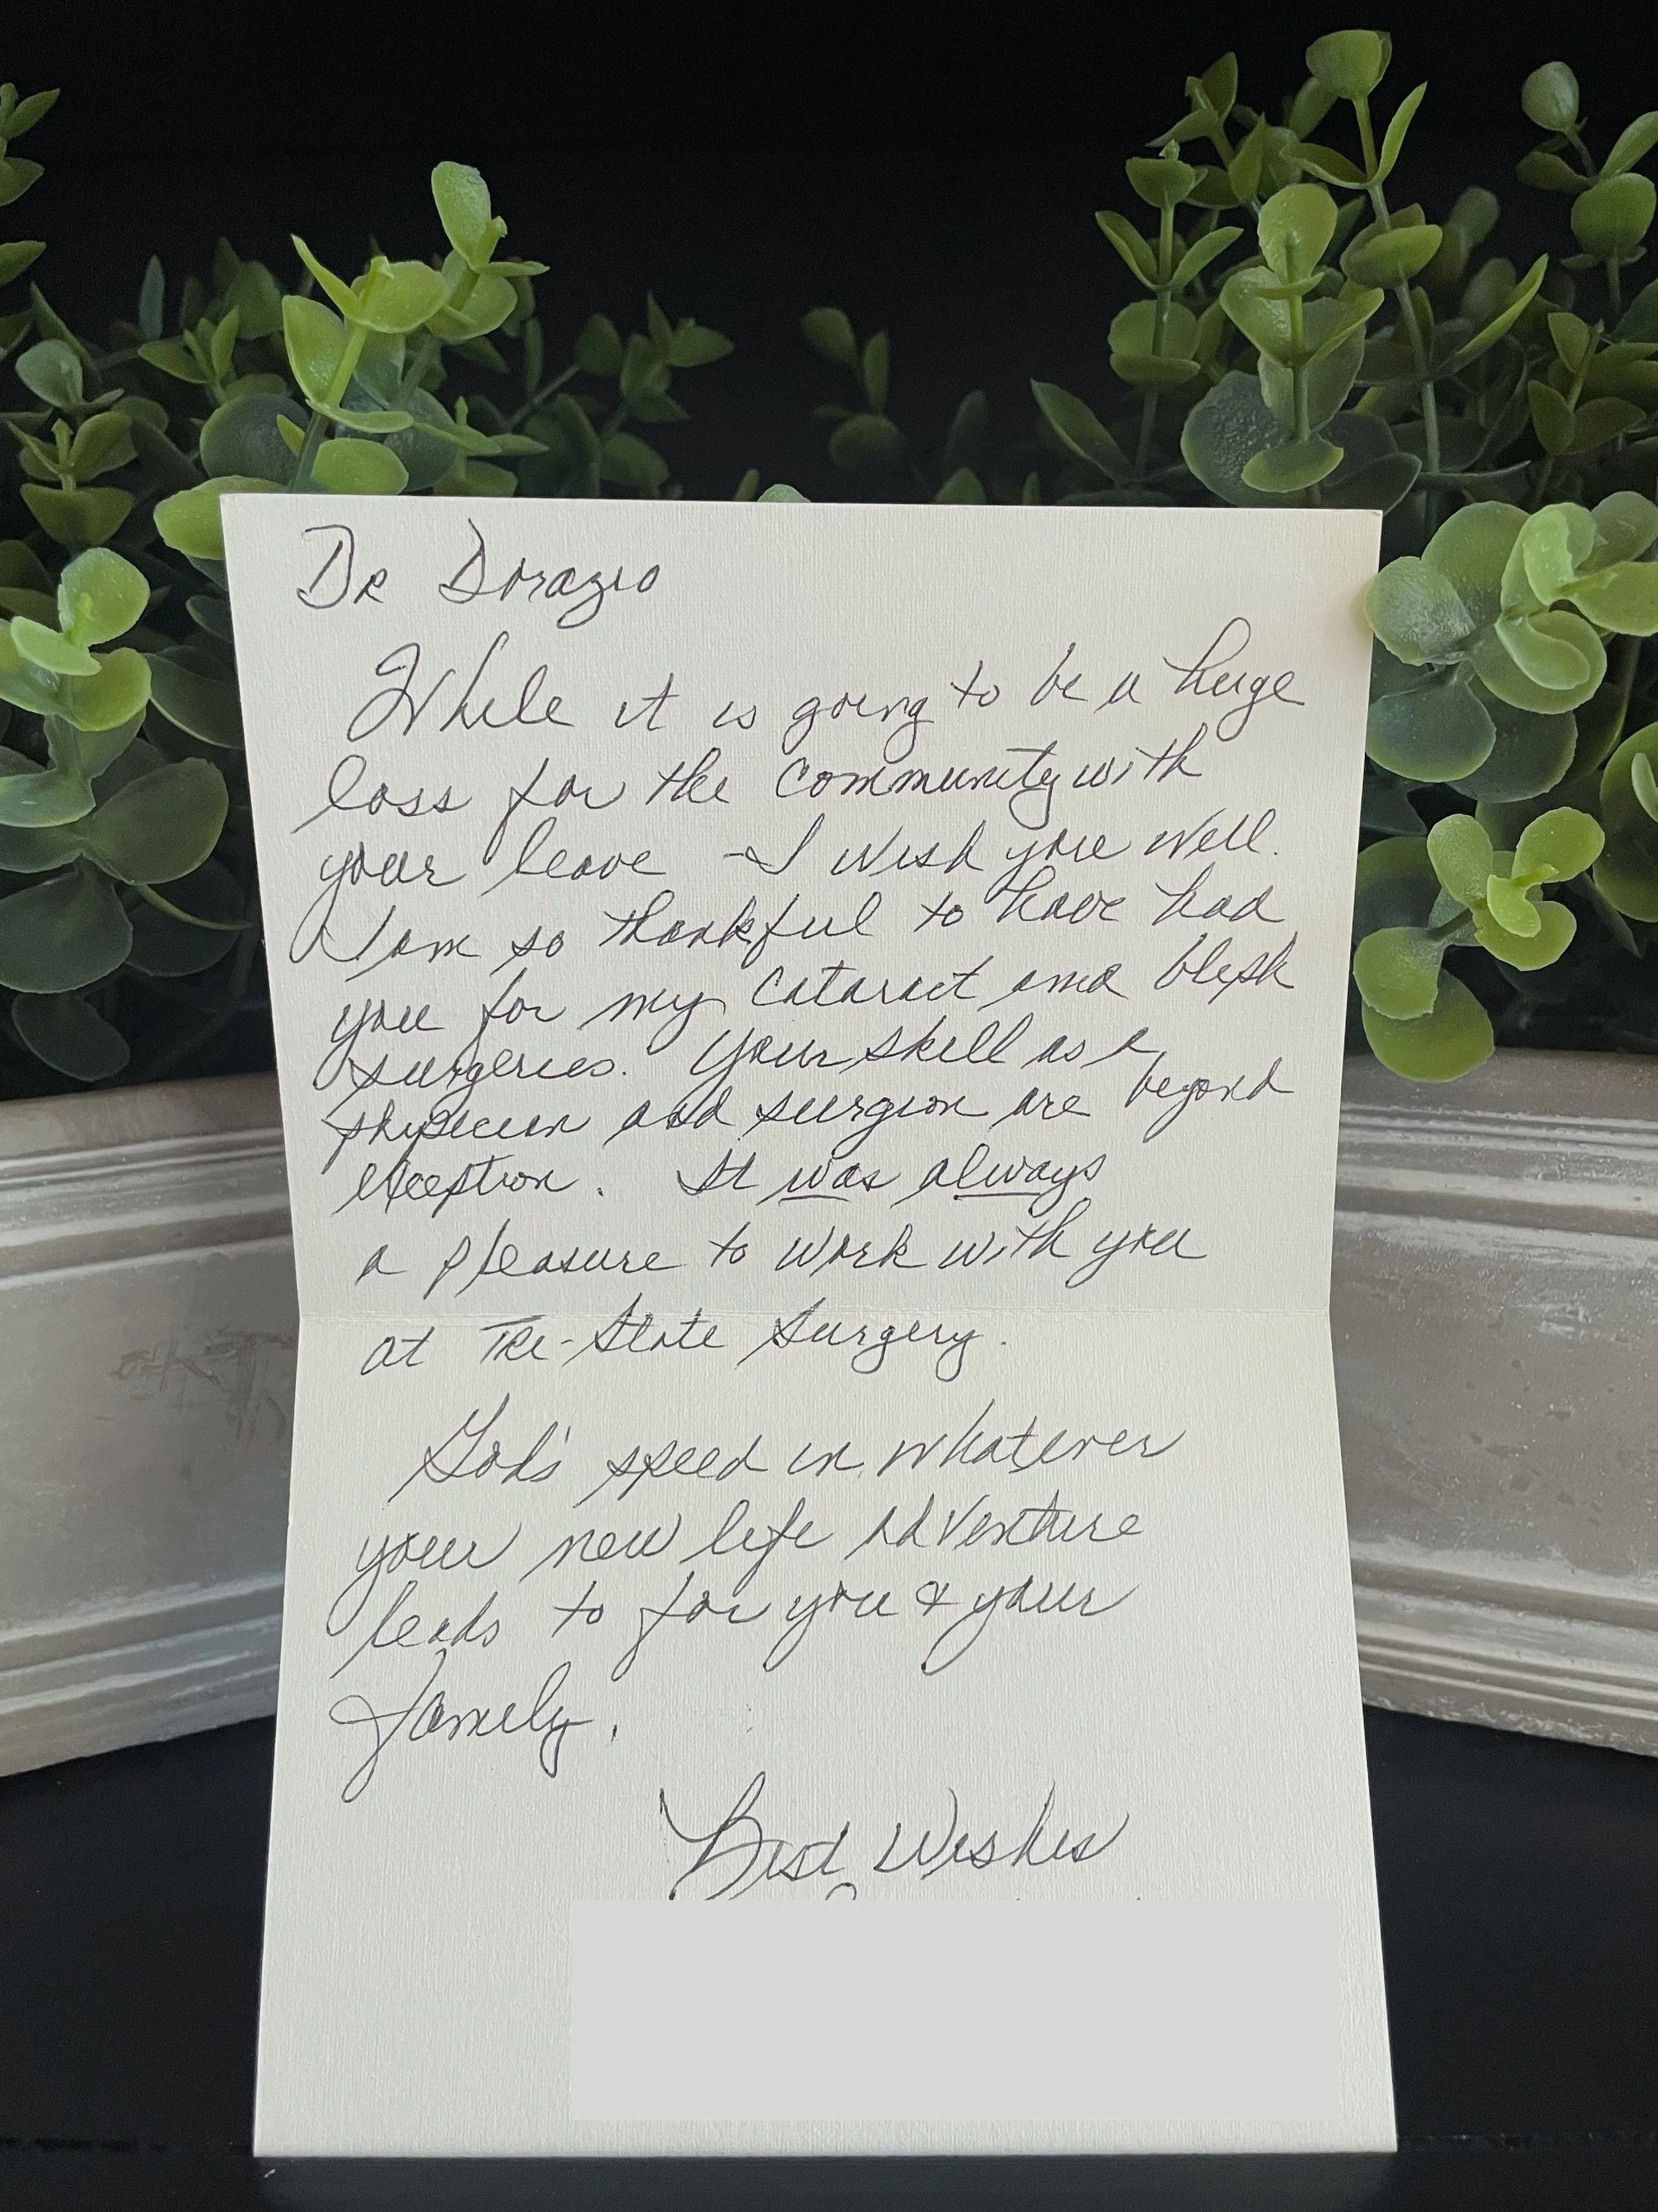 Dr Dorazio
While it is going to be a huge
loss for the community with
your leave - I wish you well.
I am so thankful to have had
you for my cataract and bleph
surgeries. Your skill as a
physician and surgeon are beyond
exception. It was always
a pleasure to work with you
at Tri-State Surgery.
God's speed in whatever
your new life adventure
leads to for you & your
family.
Best Wishes